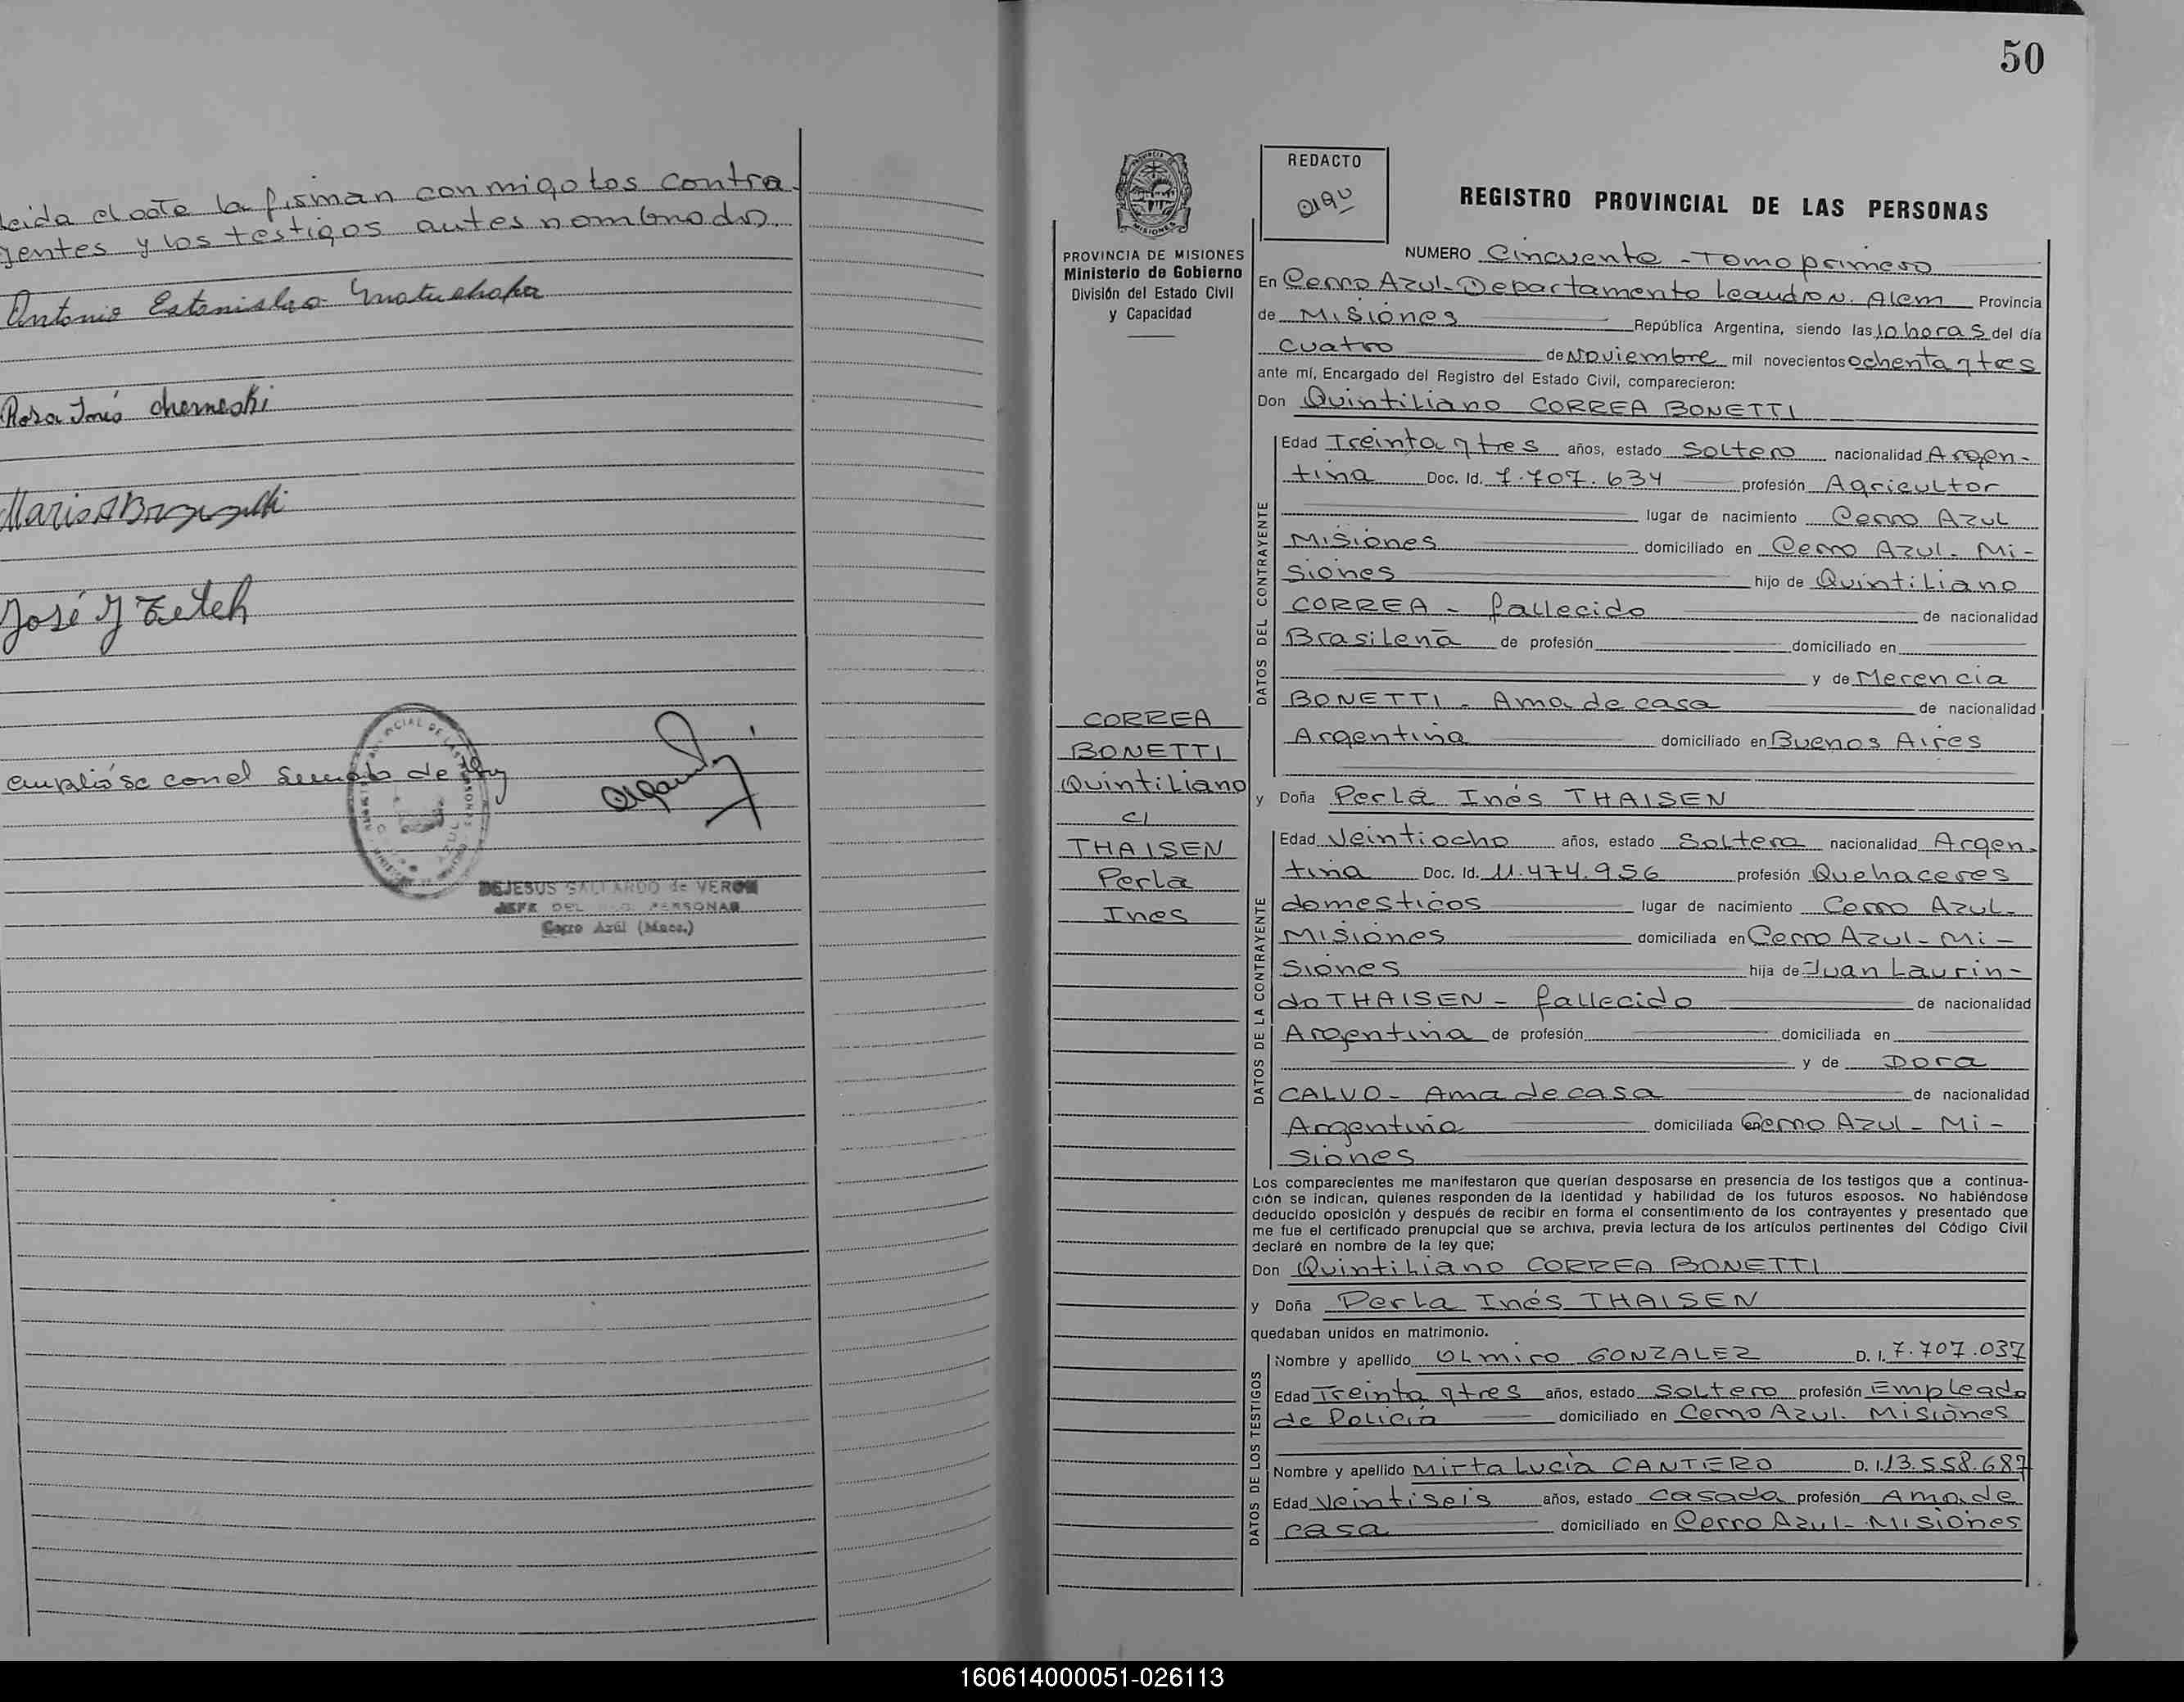 leida el acta la firman conmigo los contra-
yentes y los testigos antes nombrados.
Antonio Estanislao
Rosa Inés Cherneski
Mario A
José
cumplióse con el de ley
DEJESUS GALLARDO de VERON
JEFE DEL REG. PERSONAS
Cerro Azúl (Mnes.)
50
REDACTO
REGISTRO PROVINCIAL DE LAS PERSONAS
PROVINCIA DE MISIONES
Ministerio de Gobierno
División del Estado Civil
y Capacidad
CORREA
BONETTI
Quintiliano
c/
THAISEN
Perla
Ines
NUMERO Cincuenta - Tomo primero
En Cerro Azul - Departamento Leandro N. Alem Provincia
de Misiones República Argentina, siendo las 10 horas del día
cuatro de Noviembre mil novecientos ochenta y tres
ante mí, Encargado del Registro del Estado Civil, comparecieron:
Don Quintiliano CORREA BONETTI
DATOS DEL CONTRAYENTE
Edad Treinta y tres años, estado Soltero nacionalidad Argen-
tina Doc. Id. 7.707.634 profesión Agricultor
lugar de nacimiento Cerro Azul
Misiones domiciliado en Cerro Azul - Mi-
siones hijo de Quintiliano
CORREA - fallecido de nacionalidad
Brasileña de profesión domiciliado en
y de Merencia
BONETTI - Ama de casa de nacionalidad
Argentina domiciliado en Buenos Aires
y Doña Perla Inés THAISEN
DATOS DE LA CONTRAYENTE
Edad Veintiocho años, estado Soltera nacionalidad Argen-
tina Doc. Id. 11.474.956 profesión Quehaceres
domesticos lugar de nacimiento Cerro Azul-
Misiones domiciliada en Cerro Azul - Mi-
siones hija de Juan Laurin-
do THAISEN - fallecido de nacionalidad
Argentina de profesión domiciliada en
y de Dora
CALVO - Ama de casa de nacionalidad
Argentina domiciliada en Cerro Azul - Mi-
siones
Los comparecientes me manifestaron que querían desposarse en presencia de los testigos que a continua-
ción se indican, quienes responden de la identidad y habilidad de los futuros esposos. No habiéndose
deducido oposición y después de recibir en forma el consentimiento de los contrayentes y presentado que
me fue el certificado prenupcial que se archiva, previa lectura de los artículos pertinentes del Código Civil
declaré en nombre de la ley que;
Don Quintiliano CORREA BONETTI
y Doña Perla Inés THAISEN
quedaban unidos en matrimonio.
DATOS DE LOS TESTIGOS
Nombre y apellido Olmiro GONZALEZ D. I. 7.707.037
Edad Treinta y tres años, estado Soltero profesión Empleado
de Policía domiciliado en Cerro Azul. Misiones
Nombre y apellido Mirta Lucía CANTERO D. I. 13.558.687
Edad Veintiseis años, estado casada profesión Ama de
casa domiciliado en Cerro Azul - Misiones
160614000051-026113